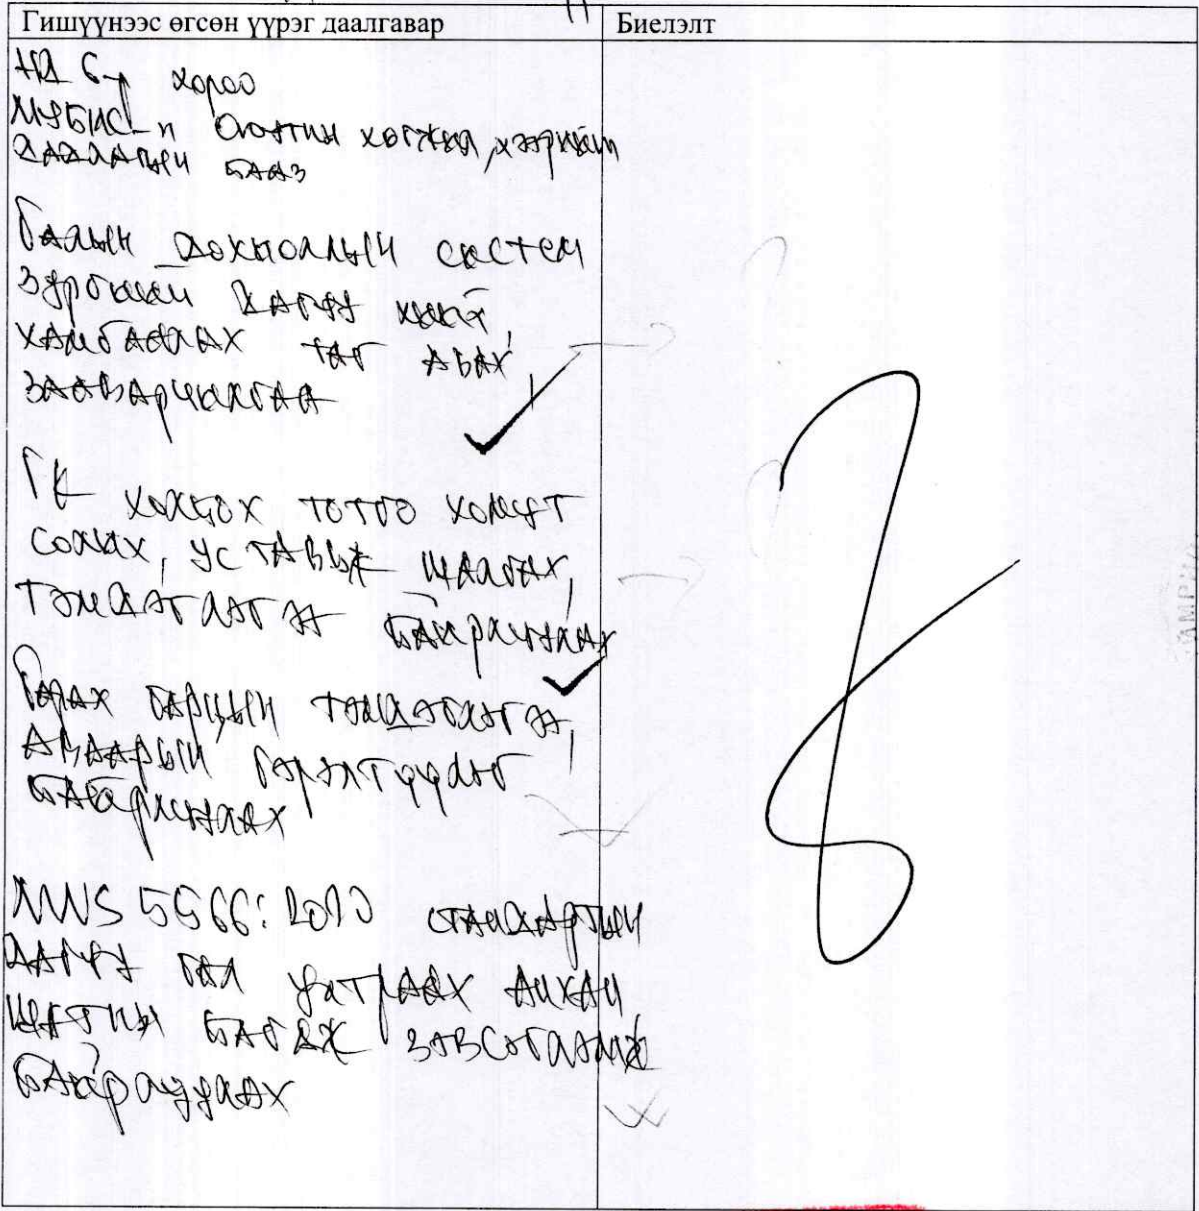 Гишүүнээс өгсөн үүрэг даалгавар
Биелэлт
НД 6-р хороо
МУБИС-н Оюутны хөгжил, хээрийн
дадлагын бааз
Галын дохиоллын систем
зургийн дагуу хийж,
хамгаалах таг авах,
зааварчилгаа
ГК холбох тоттго хомут
солих, ус тавьж шалгах,
тэмдэглэгээ байршуулах
Гарах гарцын тэмдэглэгээ,
аваарын гэрэлтүүлэг
байршуулах
MNS 5566:2010 стандартын
дагуу гал унтраах анхан
шатны багаж зэвсэглэмж
байрлуулах